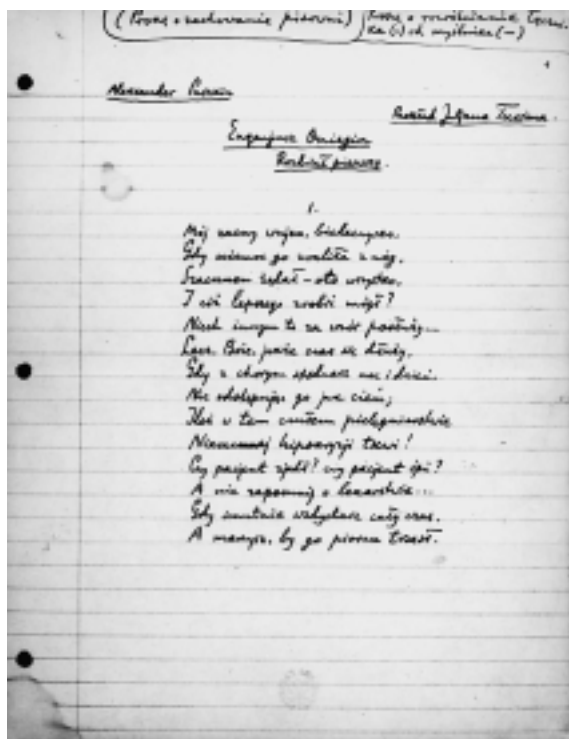 (Proszę o zachowanie pisowni) Proszę o rozróżnianie łączni-
ka (-) od myślnika (—)
1
Aleksander Puszkin
Przekład Juljana Tuwima.
Eugenjusz Oniegin
Rozdział pierwszy.
1.
Mój zacny wujas,
Gdy niemoc go zwaliła z nóg,
Szacunku żądał – oto wszystko.
I cóż lepszego zrobić mógł?
Niech innym to za wzór posłuży...
Lecz, Boże, jakże czas się dłuży,
Gdy z chorym spędzasz noc i dzień,
Nie odstępując go jak cień;
Ileż w tem czułem pielęgniarstwie
Nikczemnej hipokryzji tkwi!
Czy pacjent zjadł? czy pacjent śpi?
A nie zapomnij o lekarstwie...
Gdy smutnie wzdychasz cały czas,
A marzysz, by go piorun trzasł.